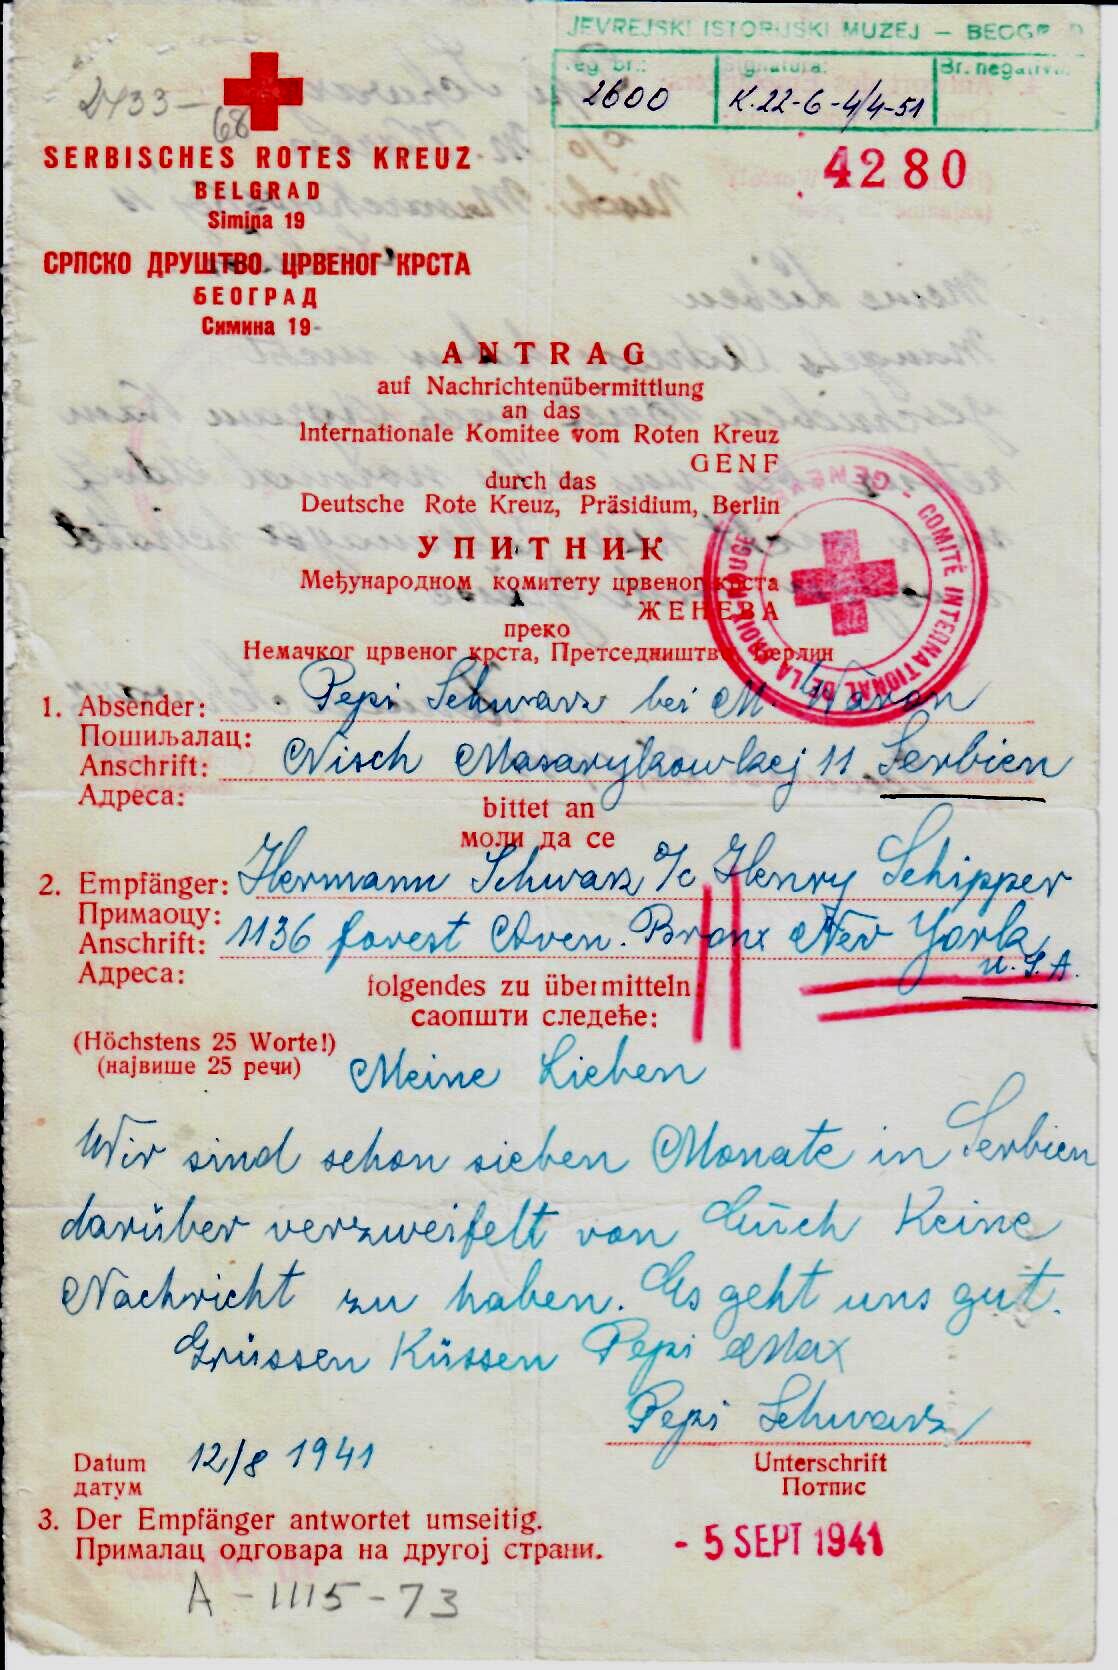 JEVREJSKI ISTORIJSKI MUZEJ – BEOGRAD
reg. br.: Signatura: Br. negativa:
2600 K.22-6-4/4-51
2433-
68
4280
SERBISCHES ROTES KREUZ
BELGRAD
Simina 19
СРПСКО ДРУШТВО ЦРВЕНОГ КРСТА
БЕОГРАД
Симина 19
ANTRAG
auf Nachrichtenübermittlung
an das
Internationale Komitee vom Roten Kreuz
GENF
durch das
Deutsche Rote Kreuz, Präsidium, Berlin
УПИТНИК
Међународном комитету црвеног крста
ЖЕНЕВА
преко
Немачког црвеног крста, Претседништво Берлин
COMITÉ INTERNATIONAL DE LA CROIX-ROUGE - GENÈVE -
1. Absender: Pepi Schwarz bei M.
Пошиљалац:
Anschrift: Nisch Masarykowkej 11 Serbien
Адреса:
bittet an
моли да се
2. Empfänger: Hermann Schwarz c/o Henry Schipper
Примаоцу:
Anschrift: 1136 forest Aven. Bronx New York
Адреса: U.S.A.
folgendes zu übermitteln
саопшти следеће:
(Höchstens 25 Worte!)
(највише 25 речи)
Meine Lieben
Wir sind schon sieben Monate in Serbien
darüber verzweifelt von Euch Keine
Nachricht zu haben. Es geht uns gut.
Grüssen Küssen Pepi Max
Pepi Schwarz
Datum 12/8 1941 Unterschrift
датум Потпис
3. Der Empfänger antwortet umseitig.
Прималац одговара на другој страни.
- 5 SEPT 1941
A-1115-73